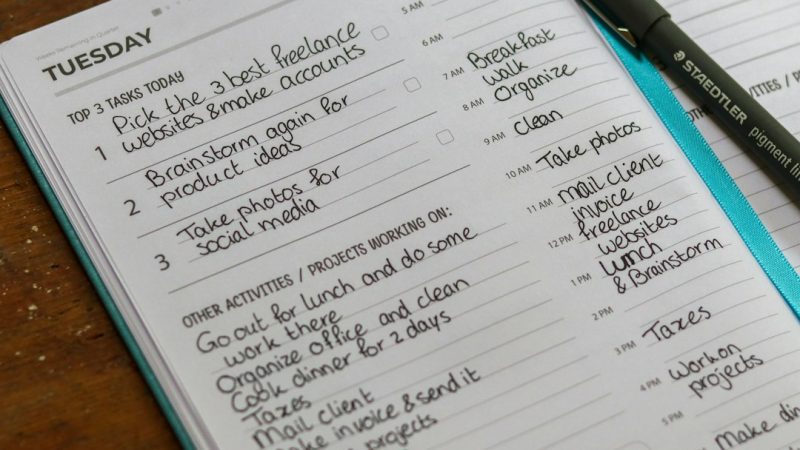 Weeks Remaining in Quarter
TUESDAY
TOP 3 TASKS TODAY
1 Pick the 3 best freelance
websites & make accounts
2 Brainstorm again for
product ideas
3 Take photos for
social media
OTHER ACTIVITIES / PROJECTS WORKING ON:
Go out for lunch and do some
work there
Organize office and clean
Cook dinner for 2 days
Taxes
Mail client
invoice & send it
projects
5 AM
6 AM
7 AM Breakfast
walk
8 AM Organize
9 AM Clean
10 AM Take photos
11 AM mail client
invoice
12 PM freelance
websites
1 PM lunch
& Brainstorm
2 PM
3 PM Taxes
4 PM Work on
projects
5 PM
Make
STAEDTLER pigment
ACTIVITIES /